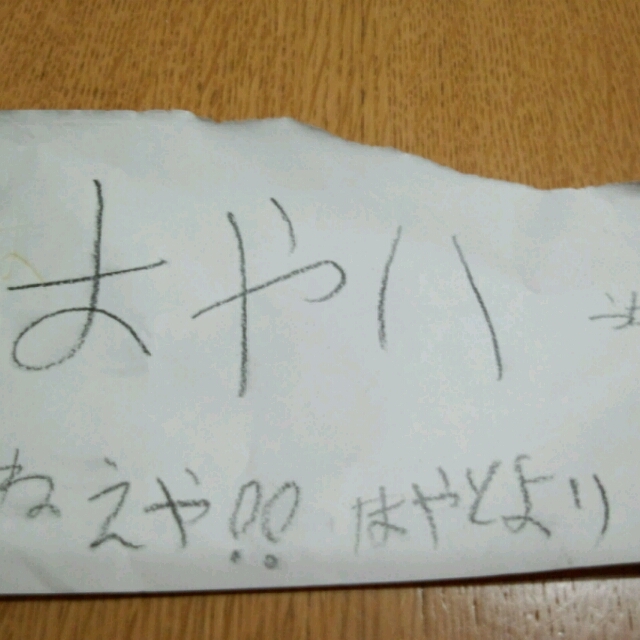 はやい
ねえや!! はやとより